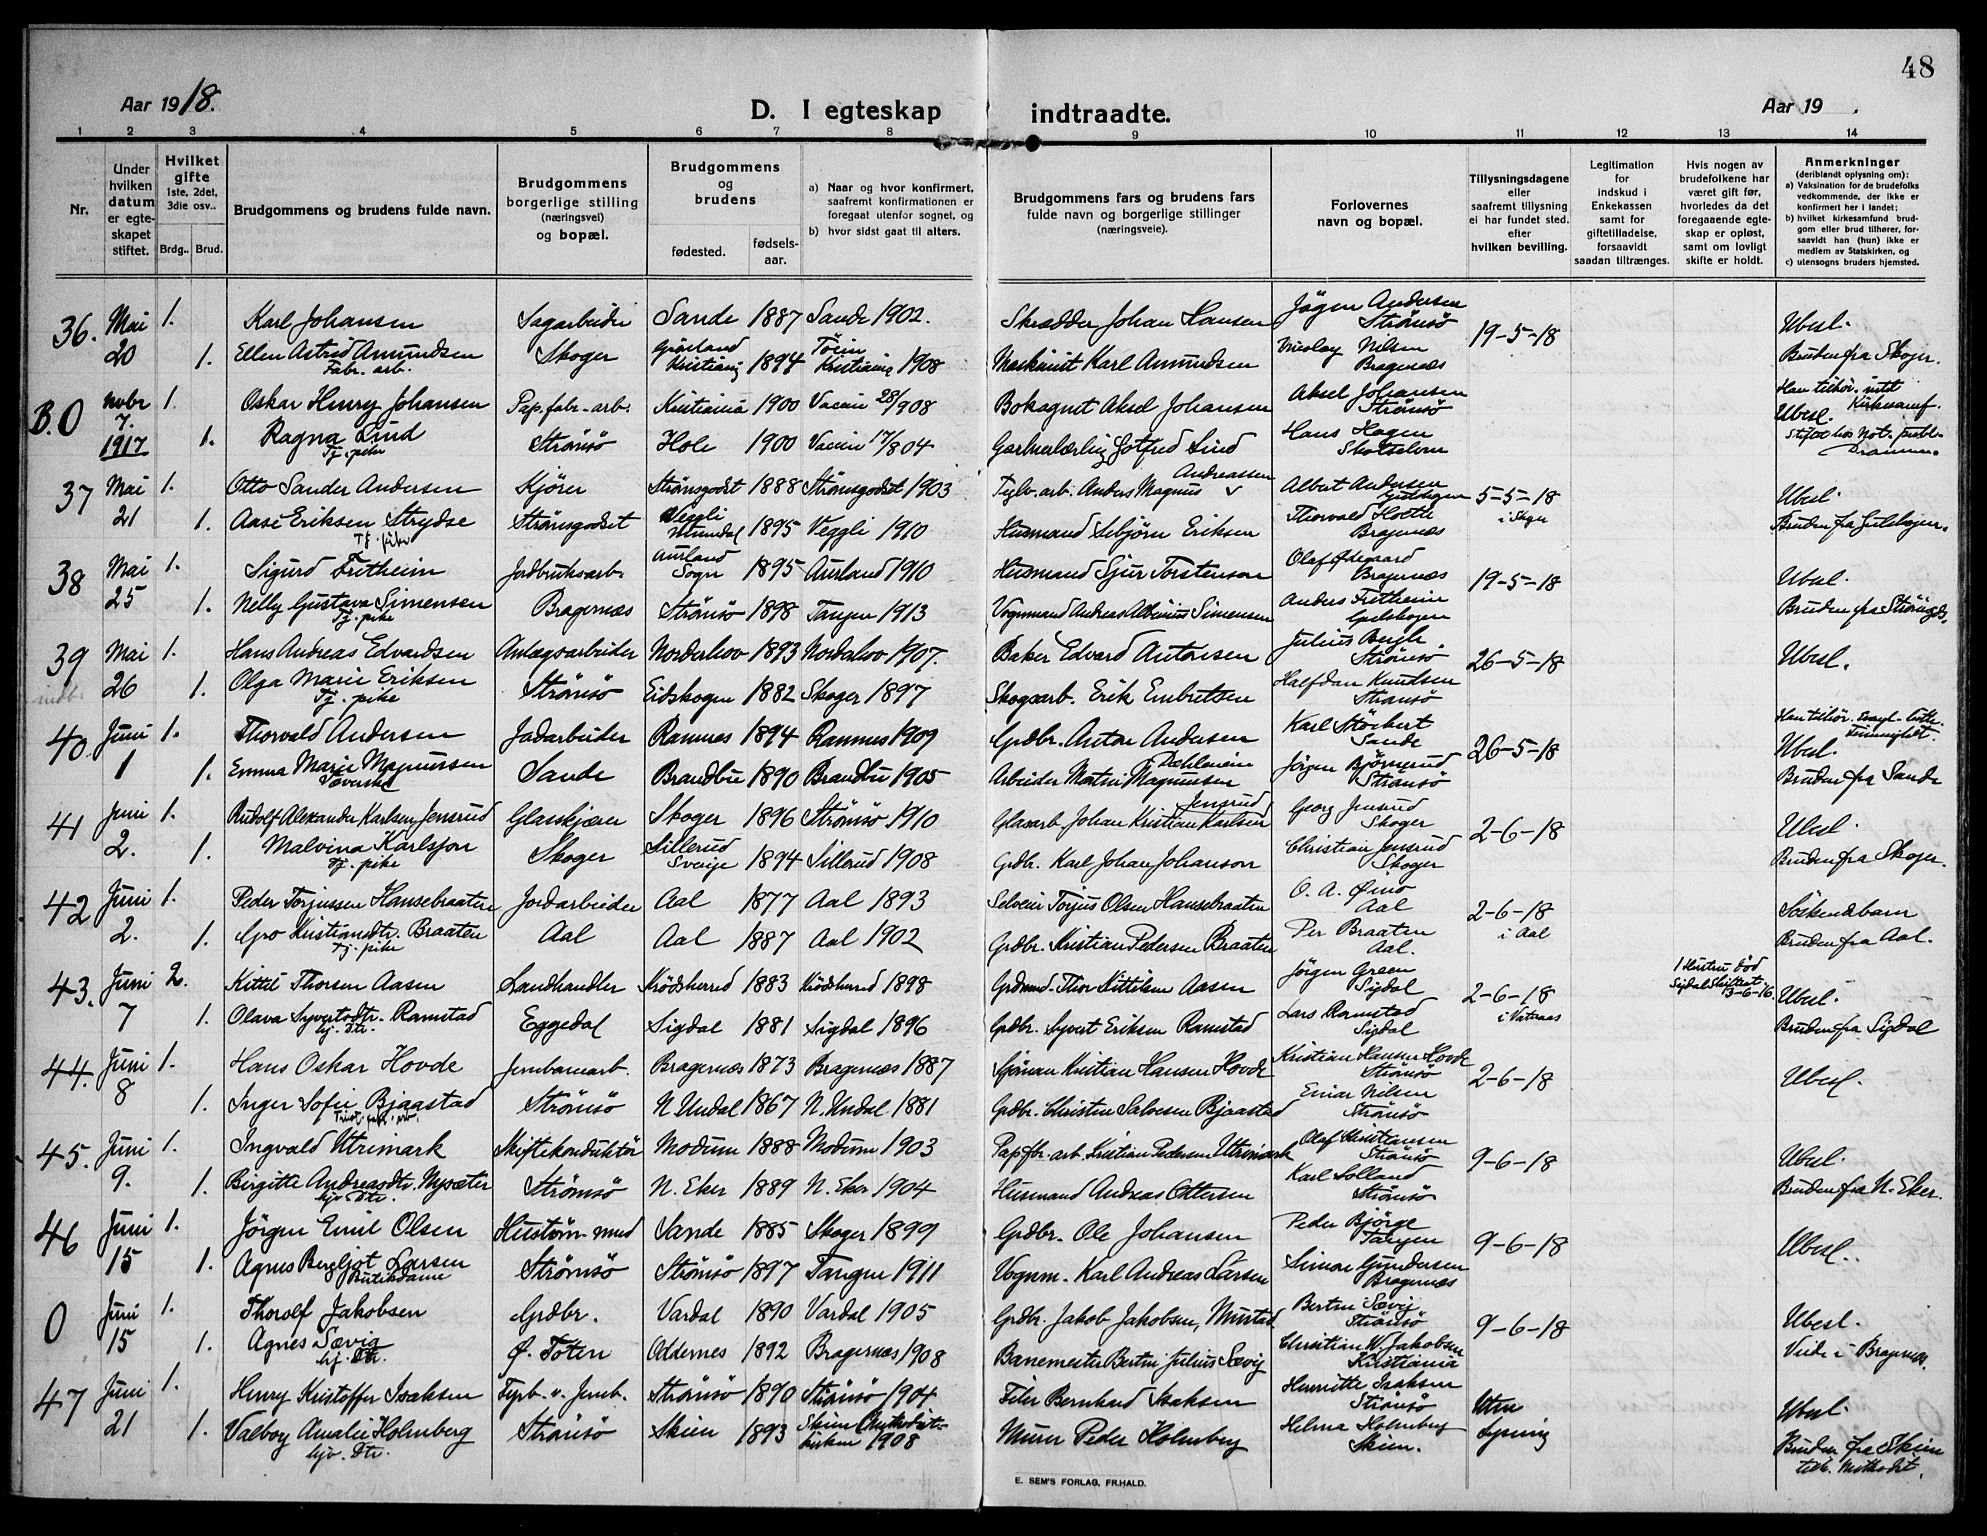 48
Aar 1918.
D. I egteskap indtraadte.
Aar 19 .
1 2 3 4 5 6 7 8 9 10 11 12 13 14
Nr.
Under hvilken datum er egte-skapet stiftet.
Hvilket gifte 1ste, 2det, 3die osv..
Brdg.. Brud.
Brudgommens og brudens fulde navn.
Brudgommens borgerlige stilling (næringsvei) og bopæl.
Brudgommens og brudens
fødested. fødsels-aar.
a) Naar og hvor konfirmert, saafremt konfirmationen er foregaat utenfor sognet, og
b) hvor sidst gaat til alters.
Brudgommens fars og brudens fars fulde navn og borgerlige stillinger (næringsveie).
Forlovernes navn og bopæl.
Tillysningsdagene eller saafremt tillysning ei har fundet sted, efter hvilken bevilling.
Legitimation for indskud i Enkekassen samt for giftetilladelse, forsaavidt saadan tiltrænges.
Hvis nogen av brudefolkene har været gift før, hvorledes da det foregaaende egte-skap er opløst, samt om lovligt skifte er holdt.
Anmerkninger (deriblandt oplysning om):
a) Vaksination for de brudefolks vedkommende, der ikke er konfirmert her i landet;
b) hvilket kirkesamfund brud-gom eller brud tilhører, for-saavidt han (hun) ikke er medlem av Statskirken, og
c) utensogns bruders hjemsted.
36. Mai 1. Karl Johansen Sagarbeider Sande 1887 Sande 1902. Skrædder Johan Hansen Jögen Andersen Strömsö 19-5-18 Ubesl.
20 1. Ellen Astrid Amundsen Fabr. arb. Skoger Kristiania 1894 Kristiania 1908 Maskinist Karl Amundsen Nicolay Nilsen Bragernæs Bruden fra Skoger.
B.O Novbr 7. 1. Oskar Henry Johansen Pap. fabr-arb. Kristiania 1900 Vaccin 28/ 908 Aksel Johansen Aksel Johansen Strömsö Han tilhör. intet Kirkesamf. Ubesl.
1917 1. Ragna Lind Tj. pike Strömsö Hole 1900 Vaccin 17/8 04 Gotfred Lind Hans Hagen Skotselven Stiftet hos Not. publ. Drammen.
37 Mai 1. Otto Sander Andersen Kjörer Strömsgodset 1888 Strömsgodset 1903 Teglv. arb. Anders Magnus Andreassen Albert Andersen 5-5-18 i Skoger Ubesl.
21 1. Aase Eriksen Strydse Tj. pike Strömsgodset Veggli Numedal 1895 Veggli 1910 Husmand Sebjörn Eriksen Thorvald Hoette Bragernæs
38 Mai 1. Sigurd Fretheim Jordbruksarb. Aurland Sogn 1895 Aurland 1910 Husmand Sjur Torstensen Olaf Ødegaard Bragernæs 19-5-18 Ubesl.
25 1. Nelly Gustava Simensen Tj. pike Bragernæs Strömsö 1898 Tangen 1913 Vognmand Andreas Albinius Simensen Anders Fretheim Gulskogen Bruden fra Strömsgds.
39 Mai 1. Hans Andreas Edvardsen Anlægsarbeider Norderhov 1893 Norderhov 1907. Baker Edvard Antonsen Julius Bergh Strömsö 26-5-18 Ubesl.
26 1. Olga Marie Eriksen Tj. pike Strömsö Eidskogen 1882 Skoger 1897 Skogsarb. Erik Embretsen Halfdan Knudsen Strömsö
40 Juni 1. Thorvald Andersen Jordarbeider Ramnes 1894 Ramnes 1909 Grdbr. Anton Andersen Karl Störbert Sande 26-5-18 Han tilhör. Evagl-Luth. Frimenighet. Ubesl.
1 1. Emma Marie Magnussen Væverske Sande Brandbu 1890 Brandbu 1905 Arbeider Martin Magnussen Jörgen Björnerud Strömsö Bruden fra Sande
41 Juni 1. Rudolf Alexander Karlsen Jensrud Glasskjærer Skoger 1896 Strömsö 1910 Glasarb. Johan Kristian Karlsen Jensrud Georg Jensrud Skoger 2-6-18 Ubesl.
2. 1. Malvina Karlsson Tj. pike Skoger Sillerud Sverige 1894 Sillerud 1908 Grdbr. Karl Johan Johanson Christian Jensrud Skoger Bruden fra Skoger.
42 Juni 1. Peder Torjussen Hansebraaten Jordarbeider Aal 1877 Aal 1893 Selveier Torjus Olsen Hansebraaten O. A. Øino Aal 2-6-18 i Aal Söskendebarn
2. 1. Gro Kristiansdtr. Braaten Tj. pike Aal Aal 1887 Aal 1902 Grdbr. Kristian Pedersen Braaten Per Braaten Aal. Bruden fra Aal.
43. Juni 2. Kittil Thorsen Aasen Landhandler Krödsherred 1883 Krödsherred 1898 Grdmd. Thor Kittilsen Aasen Jörgen Green Sigdal 2-6-18 i Vatnaas 1 Hustru död Sigdal Skifteat. 13-6-16. Ubesl.
7 1. Olava Syvertsdtr. Ramstad hj. Dtr. Eggedal Sigdal 1881 Sigdal 1896 Grdbr. Syvert Eriksen Ramstad Lars Ramstad Sigdal Bruden fra Sigdal
44. Juni 1. Hans Oskar Hovde Jernbanearb. Bragernæs 1873 Bragernæs 1887 Sjöman Kristian Hansen Hovde Kristian Hansen Hovde Strömsö 2-6-18 Ubesl.
8 1. Inger Sofie Bjaastad Strömsö N. Undal 1867 N. Undal 1881 Grdbr. Christen Salvesen Bjaastad Einar Nilsen Strömsö
45. Juni 1. Ingvald Utrimark Skiftekonduktör Modum 1888 Modum 1903 Papfbr. arb. Kristian Pedersen Utrimark Olaf Kristiansen Strömsö 9-6-18 Ubesl.
9. 1. Birgitte Andreasdtr. Nysæter hjv Dtr. Strömsö N. Eker 1889 N. Eker 1904 Husmand Andreas Ottersen Karl Solland Strömsö Bruden fra N. Eker.
46 Juni 1. Jörgen Emil Olsen Hustöm.-med Sande 1885 Skoger 1899 Grdbr. Ole Johansen Peder Bjørge Tangen 9-6-18 Ubesl.
15 1. Agnes Bergljot Larsen Butikdame Strömsö Strömsö 1897 Tangen 1911 Vognm. Karl Andreas Larsen Simon Gundersen Bragernæs
0 Juni 1. Thorolf Jakobsen Grdbr. Vardal 1890 Vardal 1905 Grdbr. Jakob Jakobsen, Mustad Bertin Sævig Strömsö 9-6-18 Ubesl.
15 1. Agnes Sævig hj. Dtr. Ø. Toten Oddernes 1892 Bragernæs 1908 Banemester Bertin Julius Sævig Christian W. Jakobsen Kristiania Viede i Bragernæs.
47 Juni 1. Henry Kristoffer Isaksen Fyrb. v. Jernb. Strömsö 1890 Strömsö 1904 Filer Bernhard Isaksen Henriette Isaksen Strömsö Uten Ubesl.
21 1. Valborg Amalie Holmberg hjv. Dtr. Strömsö Skien 1893 Skien Methodist-kirken 1908 Murer Peder Holmberg Helma Holmberg Skien. Lysning Bruden fra Skien tilh. Methodist.
E. SEM'S FORLAG, FR.HALD.